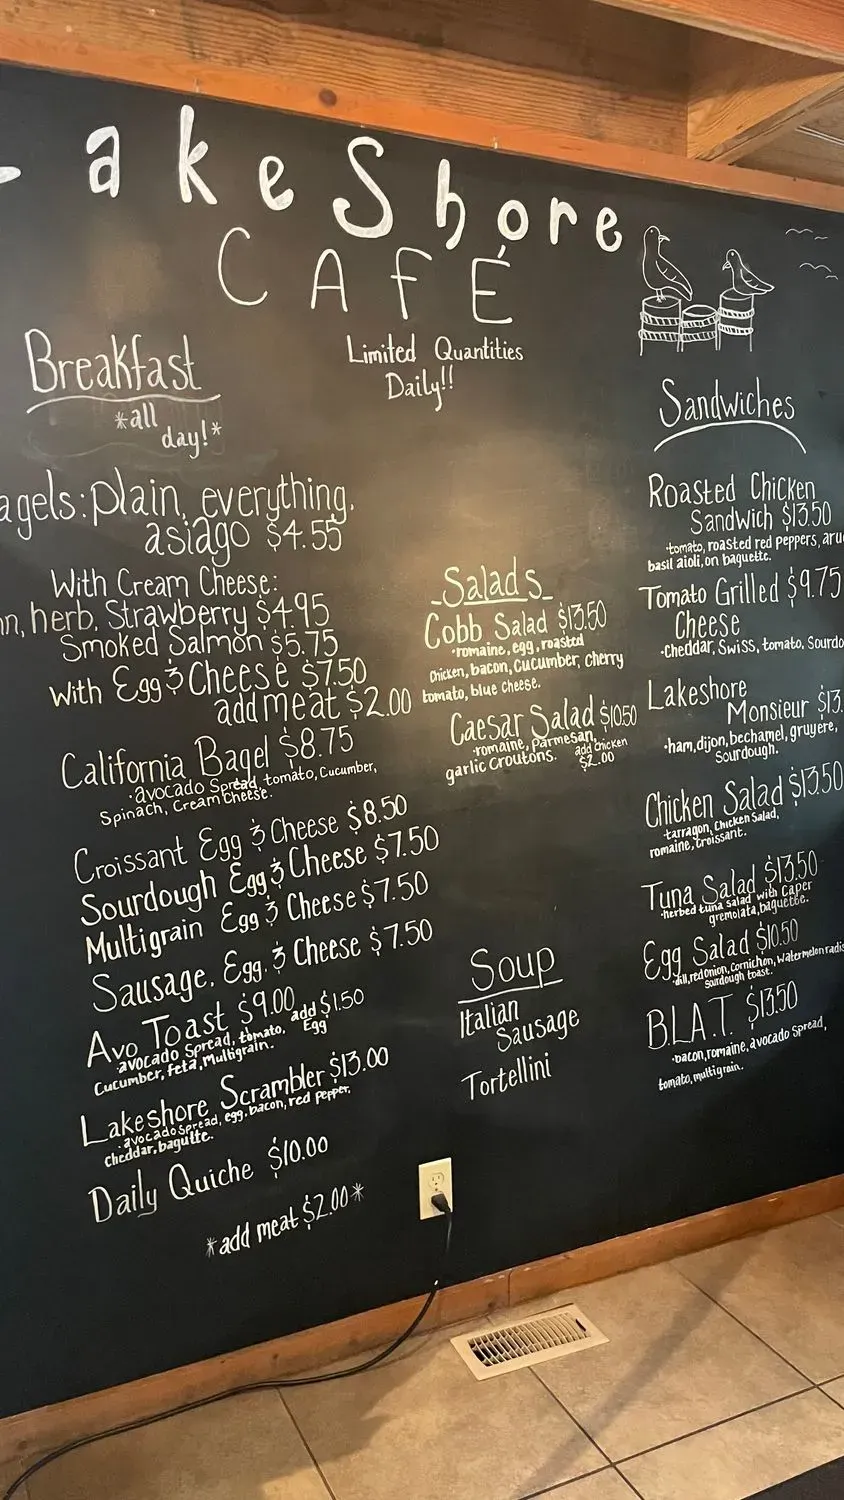 LakeShore
CAFÉ
Limited Quantities
Daily!!
Breakfast
*all
day!*
agels: plain, everything,
asiago $4.55
With Cream Cheese:
n, herb, Strawberry $4.95
Smoked Salmon $5.75
With Egg & Cheese $7.50
add meat $2.00
California Bagel $8.75
·avocado Spread, tomato, Cucumber,
Spinach, Cream Cheese.
Croissant Egg & Cheese $8.50
Sourdough Egg & Cheese $7.50
Multigrain Egg & Cheese $7.50
Sausage, Egg, & Cheese $7.50
Avo Toast $9.00 add $1.50
Egg
·avocado Spread, tomato,
Cucumber, feta, Multigrain.
Lakeshore Scrambler $13.00
·avocado spread, egg, bacon, red pepper,
cheddar, bagutte.
Daily Quiche $10.00
*add meat $2.00*
Salads
Cobb Salad $13.50
·romaine, egg, roasted
chicken, bacon, cucumber, cherry
tomato, blue cheese.
Caesar Salad $10.50
·romaine, Parmesan,
garlic croutons.
add chicken
$2.00
Soup
Italian
Sausage
Tortellini
Sandwiches
Roasted Chicken
Sandwich $13.50
·tomato, roasted red peppers, aru
basil aioli, on baguette.
Tomato Grilled $9.75
Cheese
·cheddar, Swiss, tomato, Sourdo
Lakeshore
Monsieur $13.
·ham, dijon, bechamel, gruyere,
Sourdough.
Chicken Salad $13.50
·tarragon, Chicken Salad,
romaine, croissant.
Tuna Salad $13.50
·herbed tuna salad with Caper
gremolata, baguette.
Egg Salad $10.50
·dill, red onion, Cornichon, watermelon radis
sourdough toast.
B.L.A.T. $13.50
·bacon, romaine, avocado Spread,
tomato, multigrain.